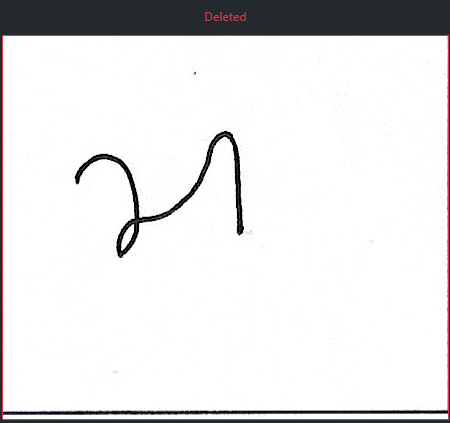 Deleted
21